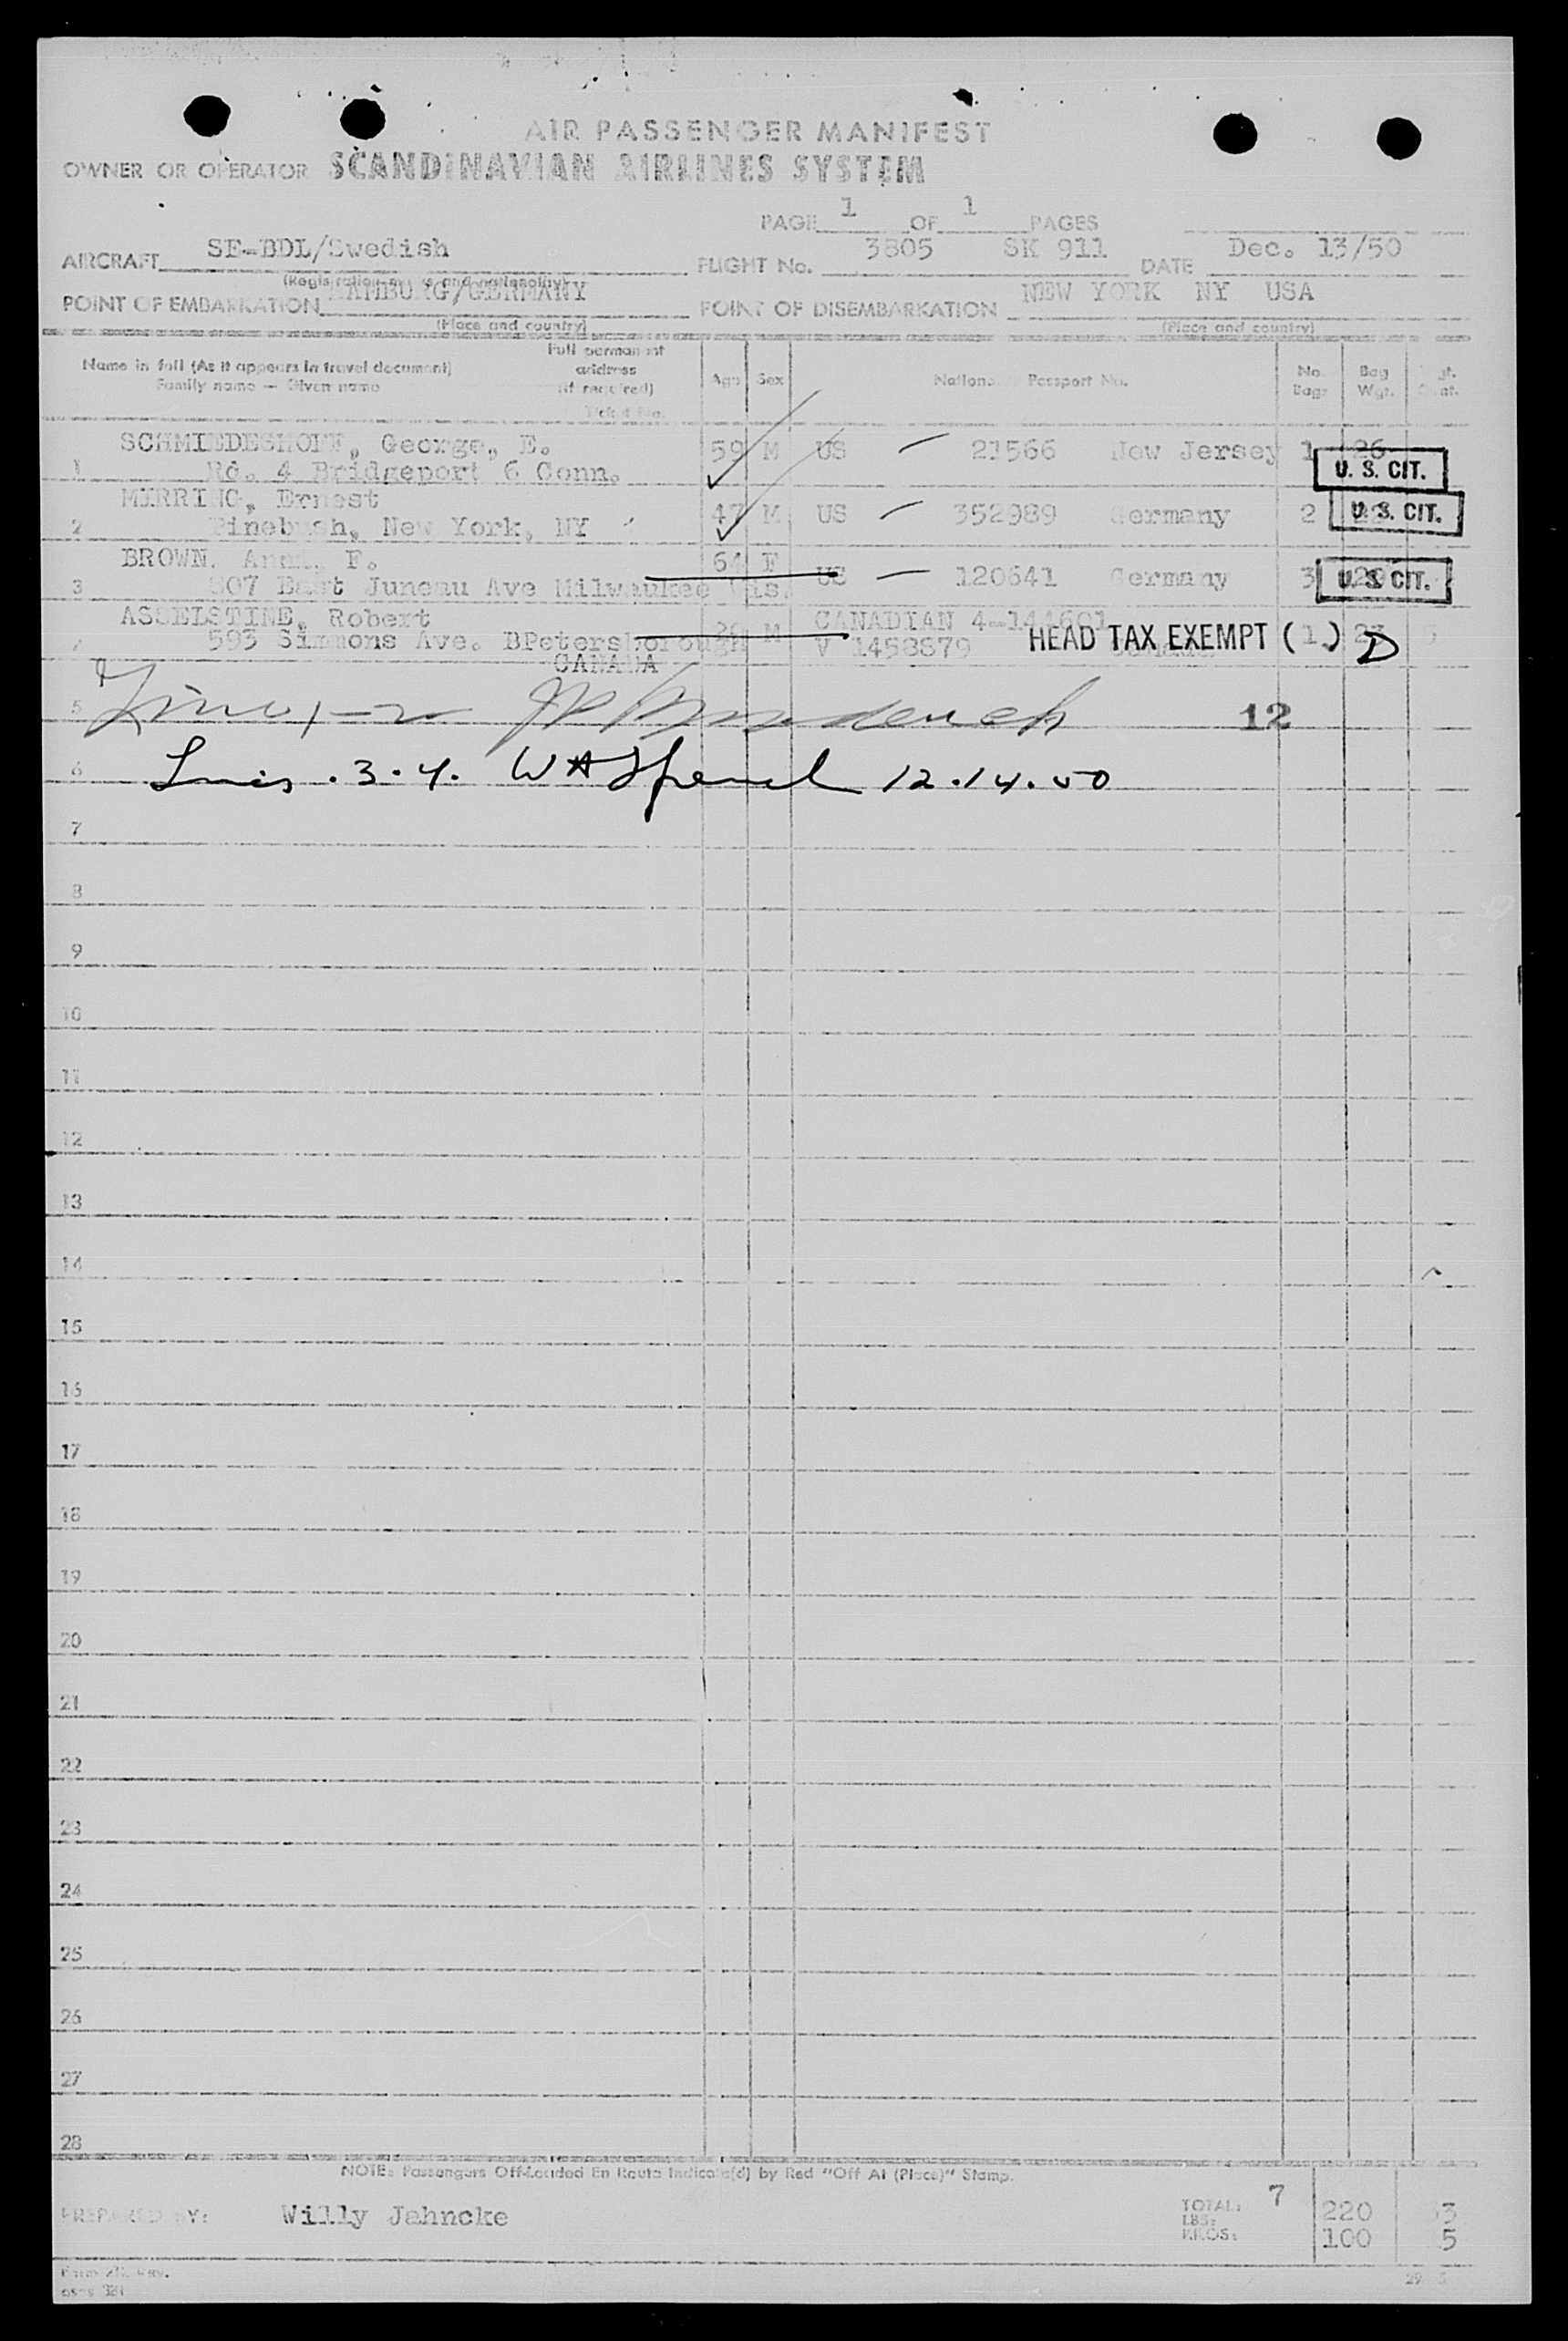 AIR PASSENGER MANIFEST
OWNER OR OPERATOR SCANDINAVIAN AIRLINES SYSTEM
PAGE 1 OF 1 PAGES
AIRCRAFT SE-BDL/Swedish FLIGHT No. 3805 SK 911 DATE Dec. 13/50
POINT OF EMBARKATION HAMBURG/GERMANY POINT OF DISEMBARKATION NEW YORK NY USA
(Place and country) (Place and country)
Name in full (As it appears in travel document) Full permanent
Family name — Given name address
(if required)
Age Sex Passport No. No. Bags Bag Wgt.
SCHMIEDESHOFF, George, E. 59 M US 21566 New Jersey 1 26
1 Rd. 4 Bridgeport 6 Conn. U. S. CIT.
Ernest 47 M US 352989 Germany 2 U. S. CIT.
2 Pinebush, New York, NY
BROWN, F. 64 F US 120641 Germany 3 U. S. CIT.
3 807 East Juneau Ave Milwaukee Wis.
ASSELSTINE, Robert M CANADIAN
593 Simmons Ave. BPetersborough V 1458879 HEAD TAX EXEMPT (1) D
CANADA
5 12
6 3.4. 12.14.50
7
8
9
10
11
12
13
14
15
16
17
18
19
20
21
22
23
24
25
26
27
28
NOTE: Passengers Off-Loaded En Route Indicate(d) by Red "Off At (Place)" Stamp.
PREPARED BY: Willy Jahncke TOTAL: 7
LBS: 220
KILOS: 100 5